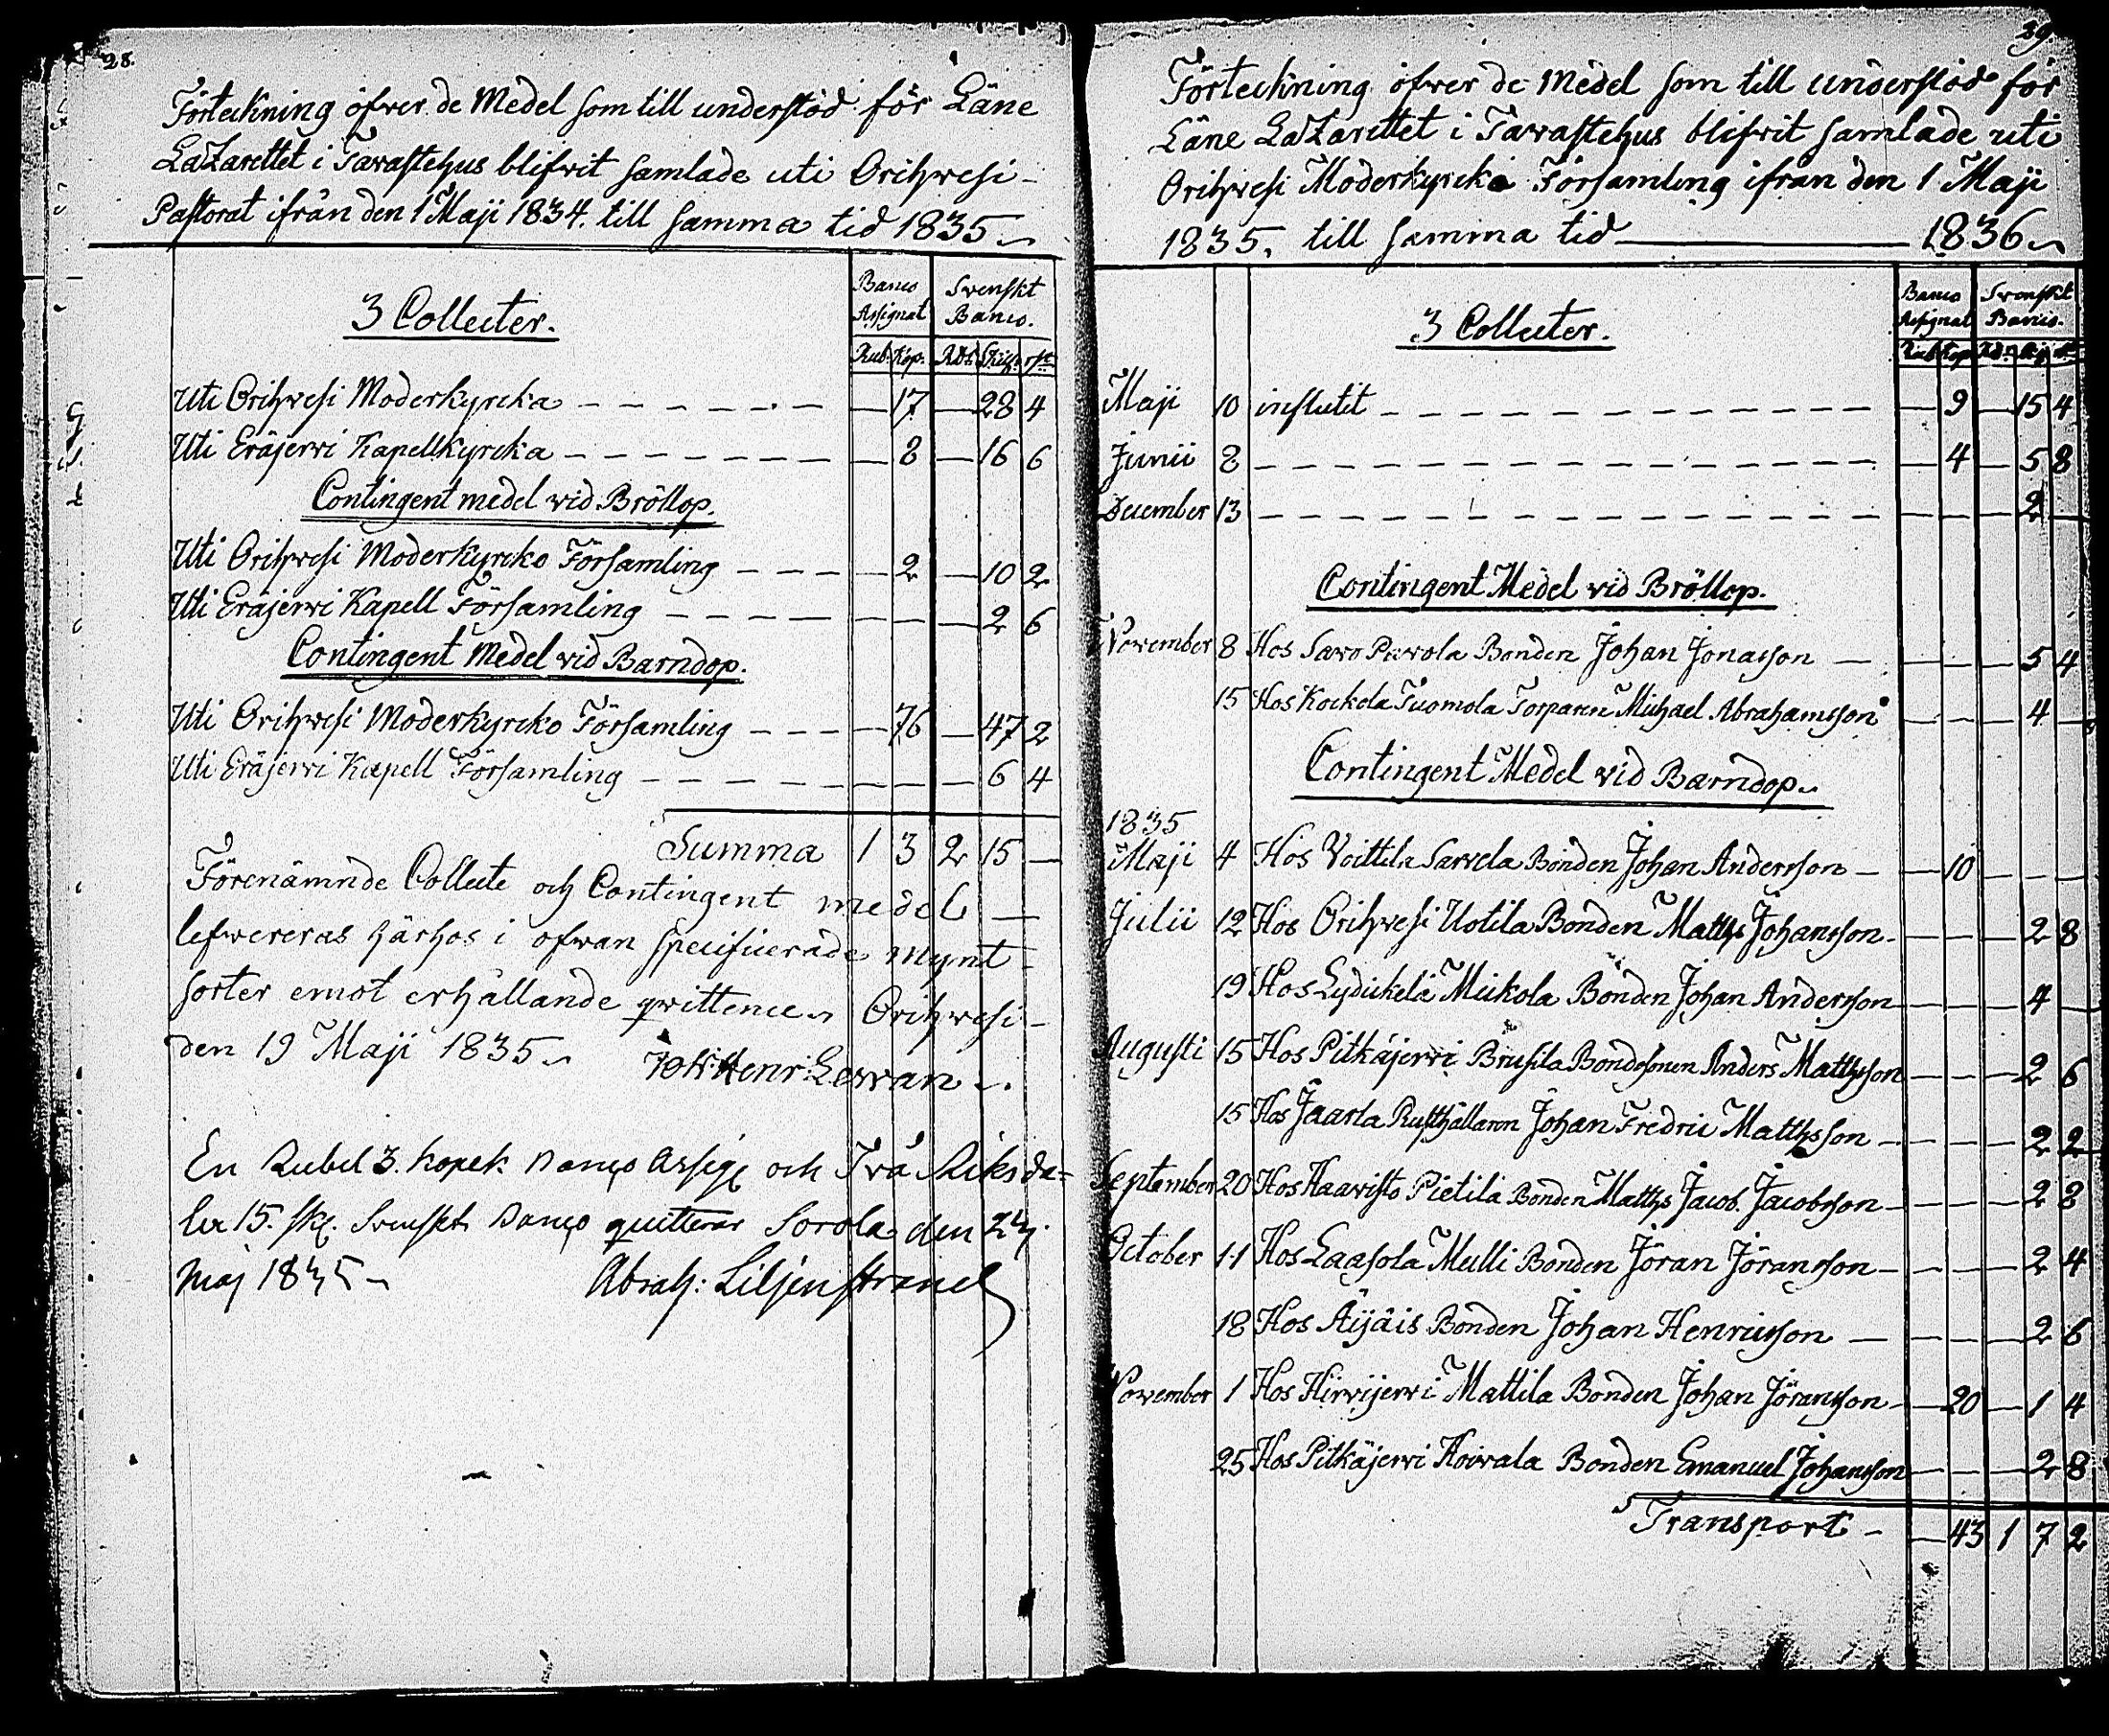 28.
Förteckning öfver de Medel som till understöd för Läne
Lazarettet i Tavastehus blifvit samlade uti Orihvesi
Pastorat ifrån den 1 Maji 1834. till samma tid 1835
3 Collecter.
Banco Assignat Svenskt Banco.
Rub. Kop. Rds. Skill. rst.
Uti Orihvesi Moderkyrcka — 17 — 28 4
Uti Eräjervi Kapellkyrcka — 8 — 16 6
Contingent medel vid Bröllop.
Uti Orihvesi Moderkyrcko Församling — 2 — 10 2
Uti Eräjervi Kapell Församling — — — 2 6
Contingent Medel vid Barndop.
Uti Orihvesi Moderkyrcko Församling — 76 — 47 2
Uti Eräjervi Kapell Församling — — — 6 4
Summa 1 3 2 15 —
Förenämnde Collecte och Contingent medel
lefwereras härhos i ofwan specificerade mynt
sorter emot erhållande qvittence. Orihvesi
den 19 Maji 1835
Joh: Henr: Levan
En Rubel 3. kopek Banco Assig: och Två Riksda=
ler 15. sk. Svenskt Banco quitterar Sorola den 24
Maj 1835
Abrah: Liljenstrand
29.
Förteckning öfver de Medel som till understöd för
Läne Lazarettet i Tavastehus blifvit samlade uti
Orihvesi Moderkyrcko Församling ifrån den 1 Maji
1835. till samma tid — 1836
3 Collecter.
Banco Assignat Svenskt Banco.
Rub Kop Rd. sk rst
Maji 10 influtit — 9 — 15 4
Junii 8 — 4 — 5 8
December 13 — — — 2 —
Contingent Medel vid Bröllop.
November 8 Hos Savo Pavola Bonden Johan Jonasson — — — 5 4
15 Hos Kockola Tuomola Torparen Michael Abrahamsson — — — 4 —
Contingent Medel vid Barndop.
1835
Maji 4 Hos Voittila Sarvela Bonden Johan Andersson — 10 — — —
Julii 12 Hos Orihvesi Uotila Bonden Matths Johansson — — — 2 8
19 Hos Lydickelä Mickola Bonden Johan Andersson — — — 4 —
Augusti 15 Hos Pitkäjervi Brusila Bondesonen Anders Matthsson — — — 2 6
15 Hos Jaarla Rusthållaren Johan Fredric Matthsson — — — 2 2
September 20 Hos Haavisto Pietilä Bonden Matths Jacob Jacobsson — — — 2 8
October 11 Hos Laasola Mulli Bonden Jöran Jöransson — — — 2 4
18 Hos Äijäis Bonden Johan Henricsson — — — 2 6
November 1 Hos Hirvijervi Mattila Bonden Johan Jöransson — 20 — 1 4
25 Hos Pitkäjervi Hoivala Bonden Emanuel Johansson — — — 2 8
Transport — 43 1 7 2